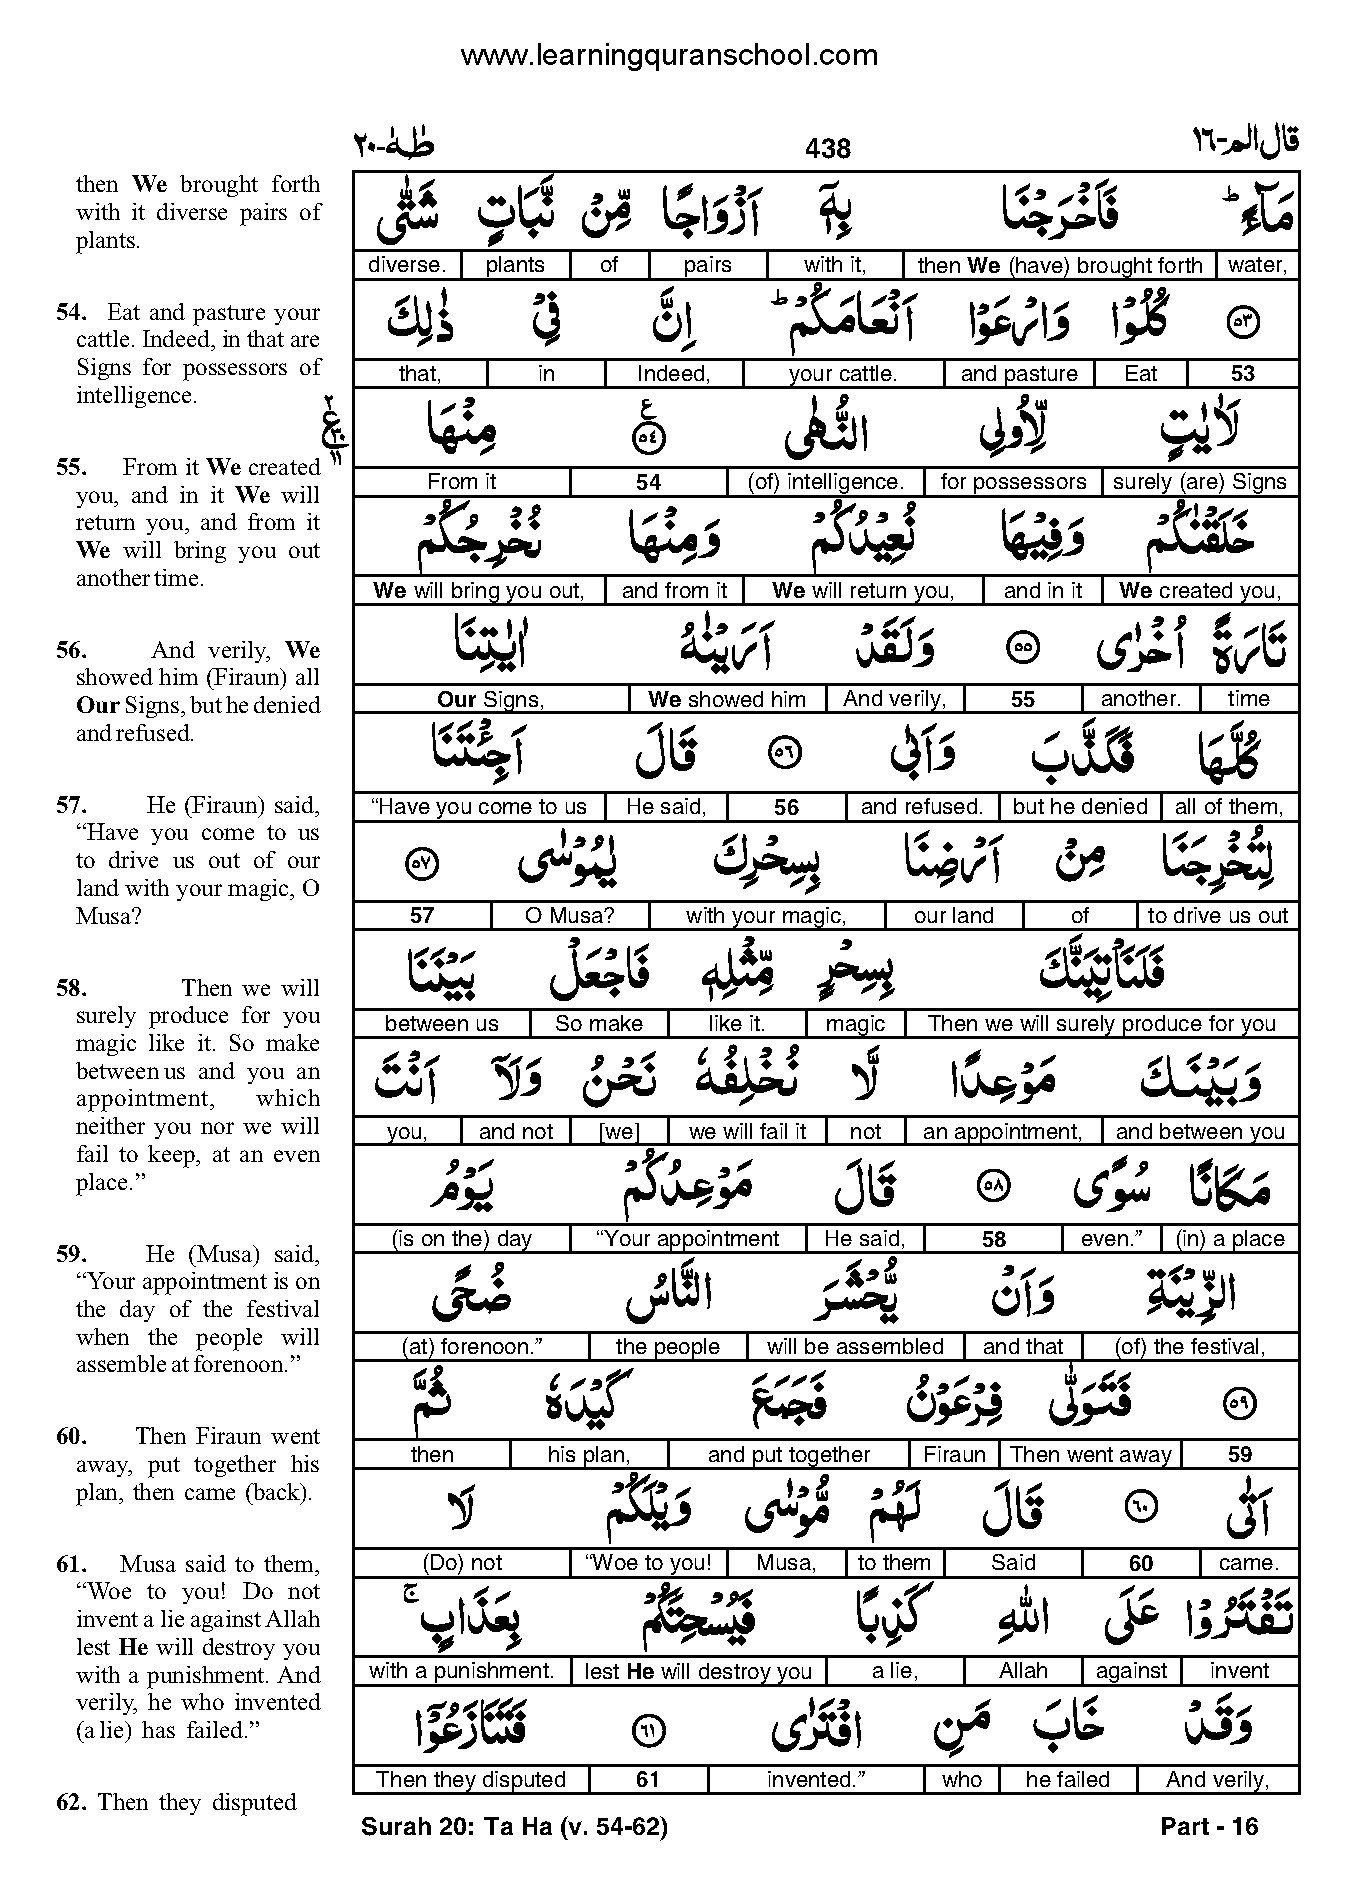 www.learningquranschool.com
طٰهٰ-٢٠
438
قال الم-١٦
then We brought forth
with it diverse pairs of
plants.
54. Eat and pasture your
cattle. Indeed, in that are
Signs for possessors of
intelligence.
55. From it We created
you, and in it We will
return you, and from it
We will bring you out
another time.
56. And verily, We
showed him (Firaun) all
Our Signs, but he denied
and refused.
57. He (Firaun) said,
“Have you come to us
to drive us out of our
land with your magic, O
Musa?
58. Then we will
surely produce for you
magic like it. So make
between us and you an
appointment, which
neither you nor we will
fail to keep, at an even
place.”
59. He (Musa) said,
“Your appointment is on
the day of the festival
when the people will
assemble at forenoon.”
60. Then Firaun went
away, put together his
plan, then came (back).
61. Musa said to them,
“Woe to you! Do not
invent a lie against Allah
lest He will destroy you
with a punishment. And
verily, he who invented
(a lie) has failed.”
62. Then they disputed
مَآءً ؕ فَاَخْرَجْنَا بِهٖۤ اَزْوَاجًا مِّنْ نَّبَاتٍ شَتّٰى
diverse. plants of pairs with it, then We (have) brought forth water,
٥٣ كُلُوْا وَارْعَوْا اَنْعَامَكُمْ ؕ اِنَّ فِيْ ذٰلِكَ
that, in Indeed, your cattle. and pasture Eat 53
لَاٰيٰتٍ لِّاُولِي النُّهٰى ٥٤ ع مِنْهَا
From it 54 (of) intelligence. for possessors surely (are) Signs
خَلَقْنٰكُمْ وَفِيْهَا نُعِيْدُكُمْ وَمِنْهَا نُخْرِجُكُمْ
We will bring you out, and from it We will return you, and in it We created you,
تَارَةً اُخْرٰى ٥٥ وَلَقَدْ اَرَيْنٰهُ اٰيٰتِنَا
Our Signs, We showed him And verily, 55 another. time
كُلَّهَا فَكَذَّبَ وَاَبٰى ٥٦ قَالَ اَجِئْتَنَا
“Have you come to us He said, 56 and refused. but he denied all of them,
لِتُخْرِجَنَا مِنْ اَرْضِنَا بِسِحْرِكَ يٰمُوْسٰى ٥٧
57 O Musa? with your magic, our land of to drive us out
فَلَنَاْتِيَنَّكَ بِسِحْرٍ مِّثْلِهٖ فَاجْعَلْ بَيْنَنَا
between us So make like it. magic Then we will surely produce for you
وَبَيْنَكَ مَوْعِدًا لَّا نُخْلِفُهٗ نَحْنُ وَلَاۤ اَنْتَ
you, and not [we] we will fail it not an appointment, and between you
مَكَانًا سُوًى ٥٨ قَالَ مَوْعِدُكُمْ يَوْمُ
(is on the) day “Your appointment He said, 58 even.” (in) a place
الزِّيْنَةِ وَاَنْ يُّحْشَرَ النَّاسُ ضُحًى
(at) forenoon.” the people will be assembled and that (of) the festival,
٥٩ فَتَوَلّٰى فِرْعَوْنُ فَجَمَعَ كَيْدَهٗ ثُمَّ
then his plan, and put together Firaun Then went away 59
اَتٰى ٦٠ قَالَ لَهُمْ مُّوْسٰى وَيْلَكُمْ لَا
(Do) not “Woe to you! Musa, to them Said 60 came.
تَفْتَرُوْا عَلَى اللّٰهِ كَذِبًا فَيُسْحِتَكُمْ بِعَذَابٍ ۚ
with a punishment. lest He will destroy you a lie, Allah against invent
وَقَدْ خَابَ مَنِ افْتَرٰى ٦١ فَتَنَازَعُوْۤا
Then they disputed 61 invented.” who he failed And verily,
Surah 20: Ta Ha (v. 54-62)
Part - 16